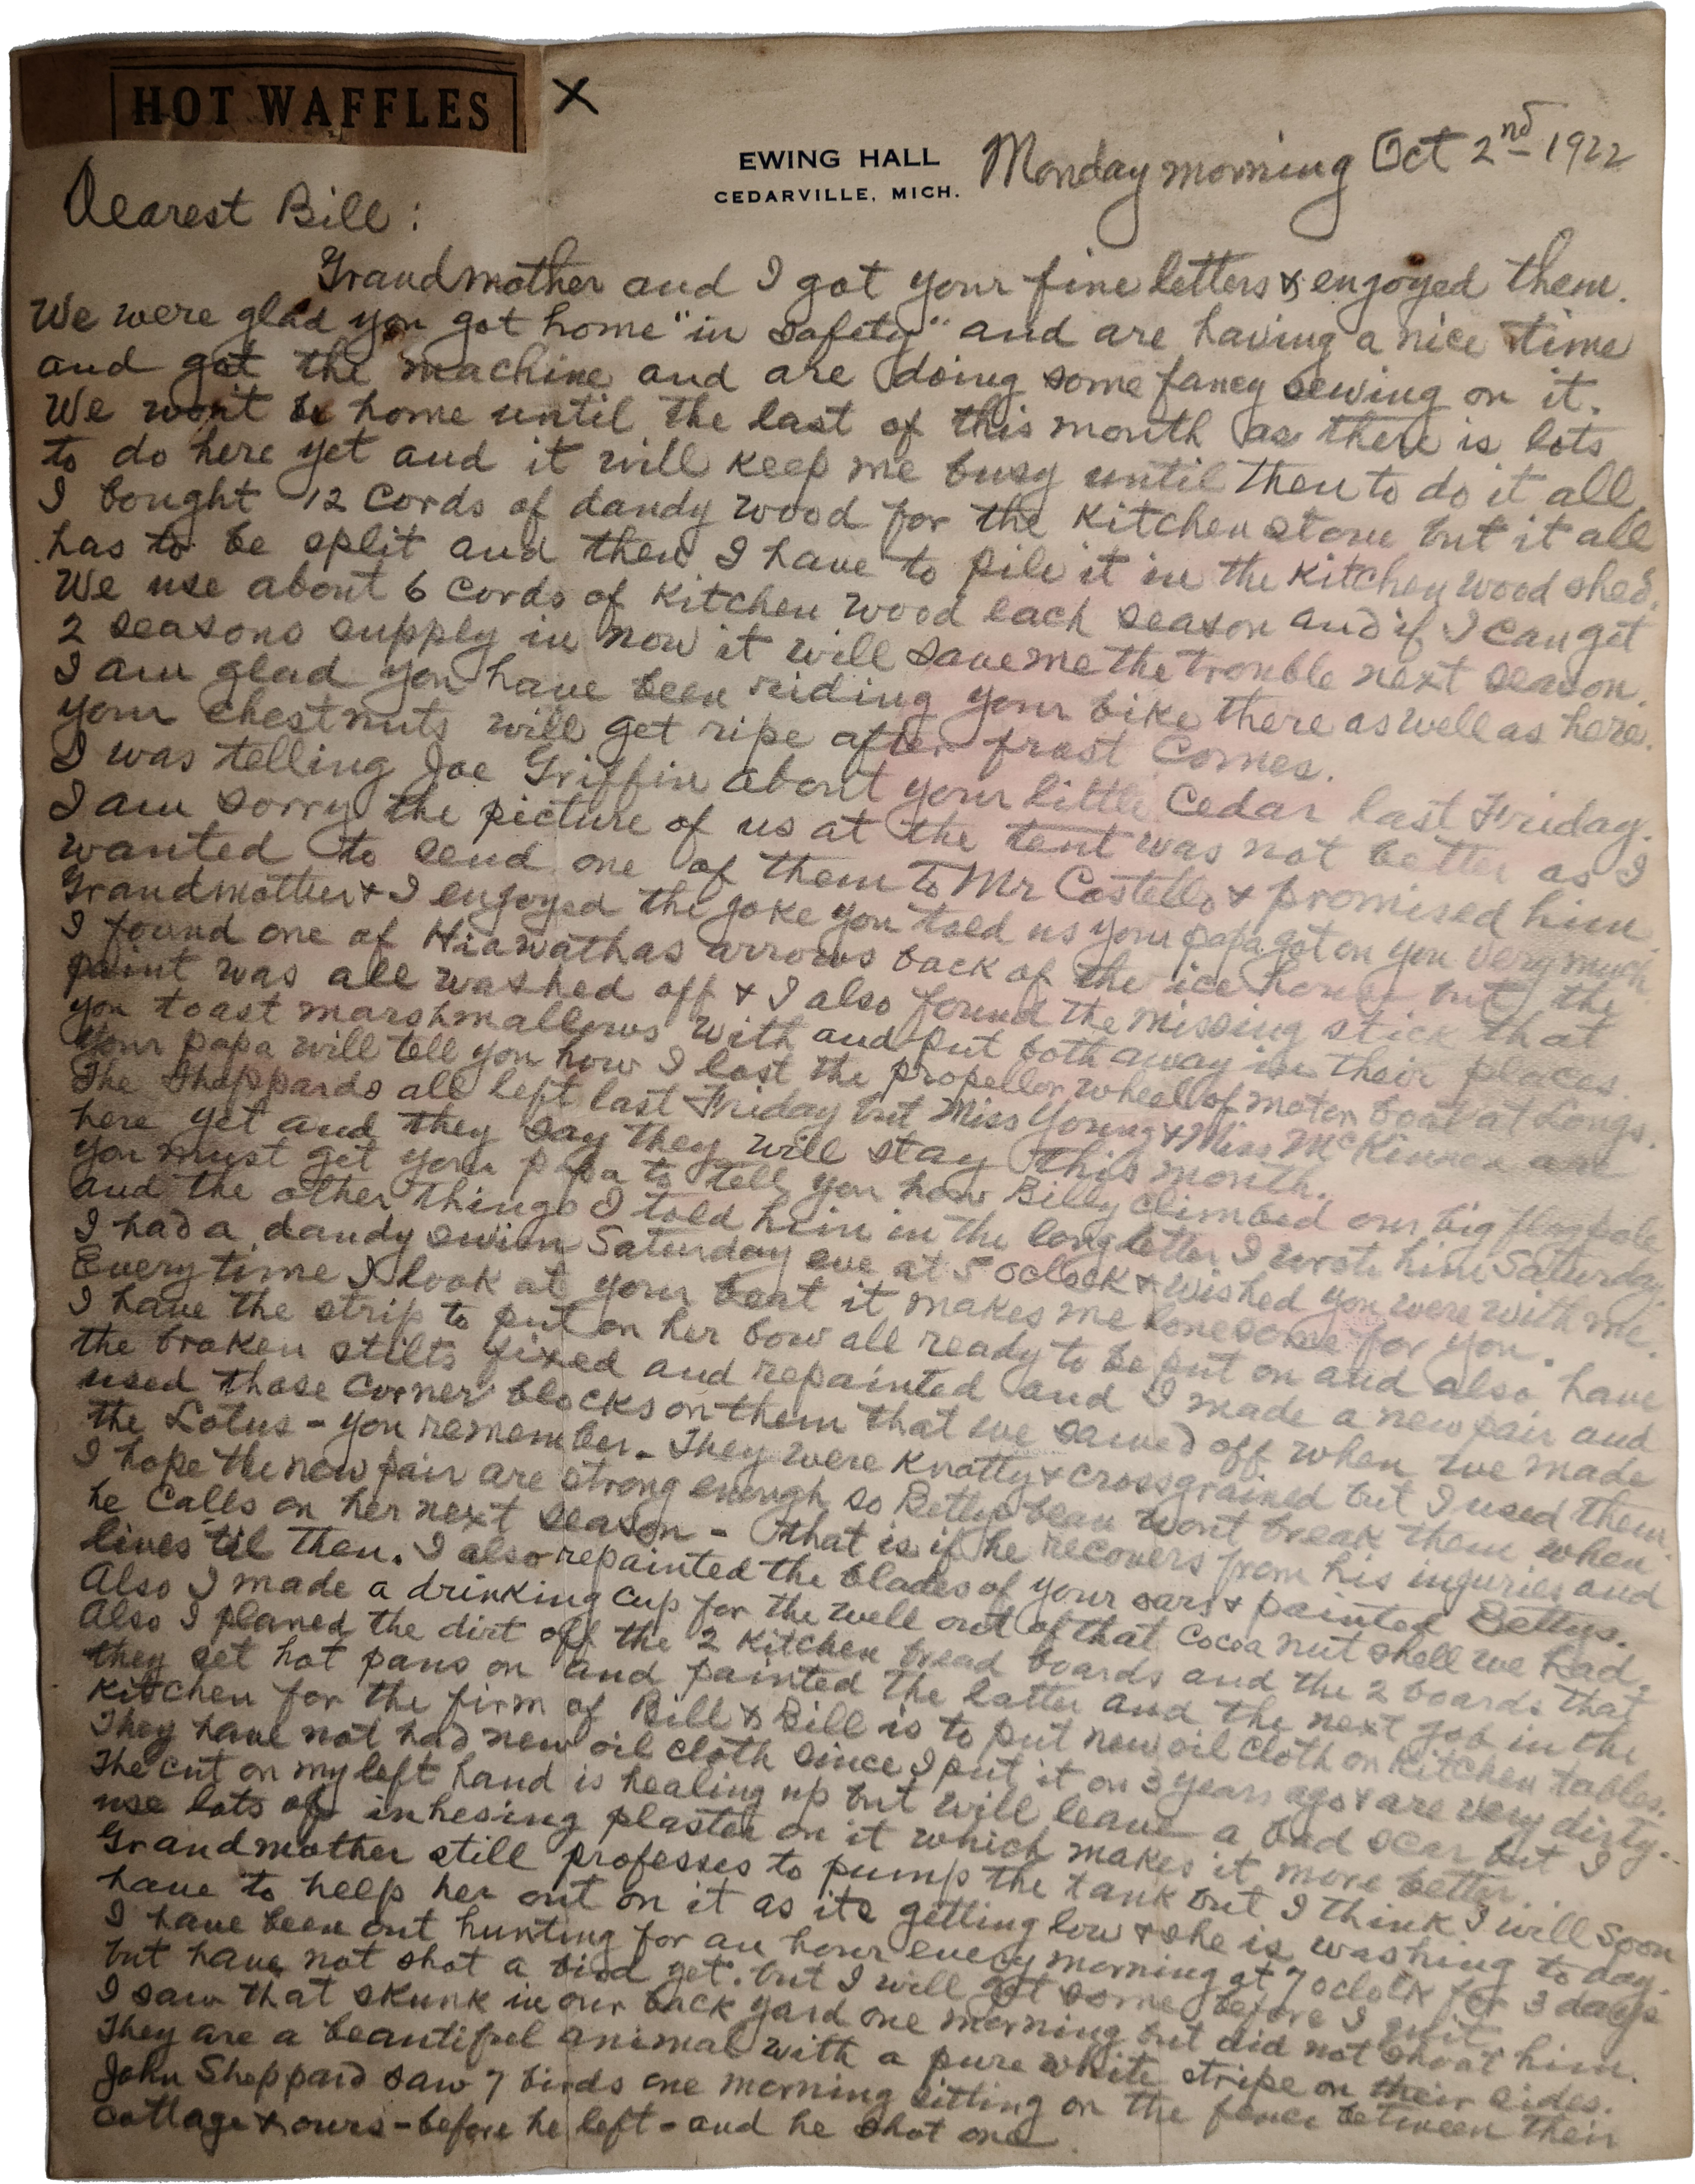 HOT WAFFLES
X
EWING HALL
CEDARVILLE, MICH.
Monday morning Oct 2nd 1922
Dearest Bill:
Grandmother and I got your fine letters & engoyed them.
We were glad you got home "in safety" and are having a nice time
and got the machine and are doing some fancy sewing on it.
We won't be home until the last of this month as there is lots
to do here yet and it will keep me busy until then to do it all
I bought 12 cords of dandy wood for the kitchen stove but it all
has to be split and then I have to pile it in the kitchen wood shed.
We use about 6 cords of kitchen wood each season and if I can get
2 seasons supply in now it will save me the trouble next season.
I am glad you have been riding your bike there as well as here.
your chestnuts will get ripe after frost comes.
I was telling Joe Griffin about your little Cedar last Friday.
I am sorry the picture of us at the tent was not better as I
wanted to send one of them to Mr Costello & promised him.
Grandmother & I engoyed the joke you told us your papa got on you very much
I found one of Hiawathas arrows back of the ice house but the
paint was all washed off & I also found the missing stick that
you toast marshmallows with and put both away in their places.
Your papa will tell you how I lost the propellor wheel of motor boat at Longs.
The Sheppards all left last Friday but Miss Young & Miss McKinnon are
here yet and they say they will stay this month.
you must get your papa to tell you how Billy climbed our big flagpole
and the other things I told him in the long letter I wrote him Saturday.
I had a dandy swim Saturday eve at 5 oclock & wished you were with me.
Every time I look at your boat it makes me lonesome for you.
I have the strip to put on her bow all ready to be put on and also have
the broken stilts fixed and repainted and I made a new pair and
used those corner blocks on them that we sawed off when we made
the Lotus - you remember - They were knotty & crossgrained but I used them.
I hope the new pair are strong enough so Bettys beau wont break them when
he calls on her next season - that is if he recovers from his injuries and
lives 'til then. I also repainted the blades of your oars & painted Bettys.
Also I made a drinking cup for the well out of that cocoa nut shell we had.
Also I planed the dirt off the 2 kitchen bread boards and the 2 boards that
they set hot pans on and painted the latter and the next job in the
kitchen for the firm of Bill & Bill is to put new oil cloth on kitchen tables.
They have not had new oil cloth since I put it on 3 years ago & are very dirty.
The cut on my left hand is healing up but will leave a bad scar but I
use lots of inhesing plaster on it which makes it more better...
Grandmother still professes to pump the tank but I think I will soon
have to help her out on it as its getting low & she is washing to day.
I have been out hunting for an hour every morning at 7 oclock for 3 days
but have not shot a bird yet. but I will get some before I quit
I saw that skunk in our back yard one morning but did not shoot him.
They are a beautiful animal with a pure white stripe on their sides.
John Sheppard saw 7 birds one morning sitting on the fence between their
cottage & ours - before he left - and he shot one.